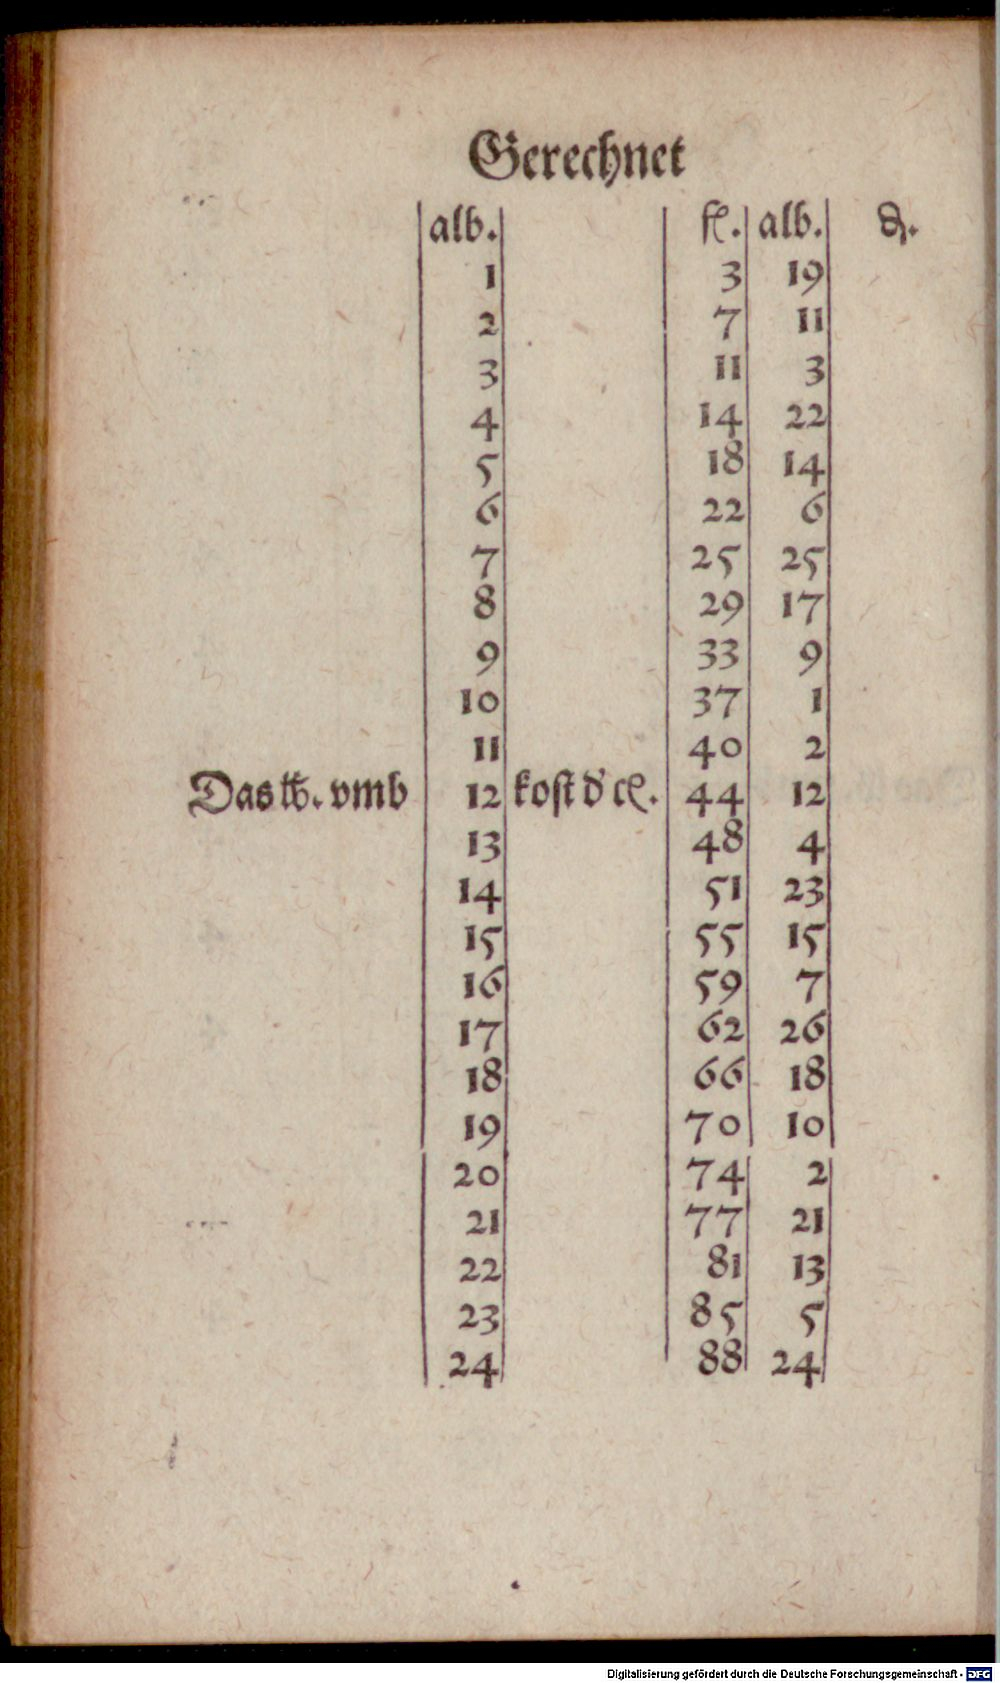 Gerechnet
alb. fl. alb. ₰.
1 3 19
2 7 11
3 11 3
4 14 22
5 18 14
6 22 6
7 25 25
8 29 17
9 33 9
10 37 1
11 40 2
Das ℔. vmb 12 kost d' cℓ. 44 12
13 48 4
14 51 23
15 55 15
16 59 7
17 62 26
18 66 18
19 70 10
20 74 2
21 77 21
22 81 13
23 85 5
24 88 24
Digitalisierung gefördert durch die Deutsche Forschungsgemeinschaft - DFG